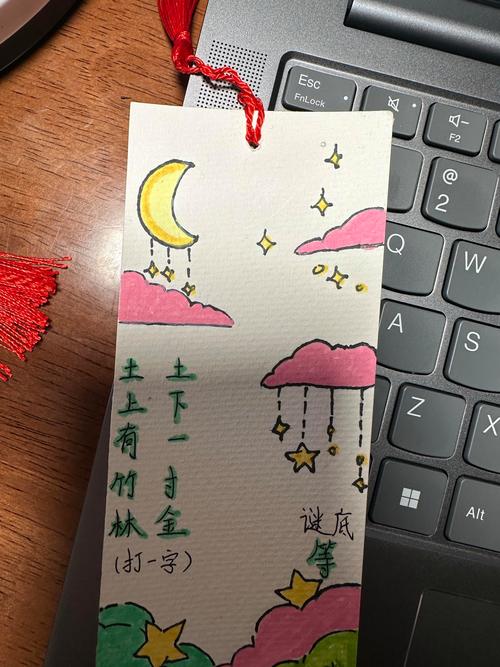 土上有竹林
土下一寸金
(打一字)
谜底
等
Esc
FnLock
F2
@
2
Q
W
A
S
Z
X
Alt